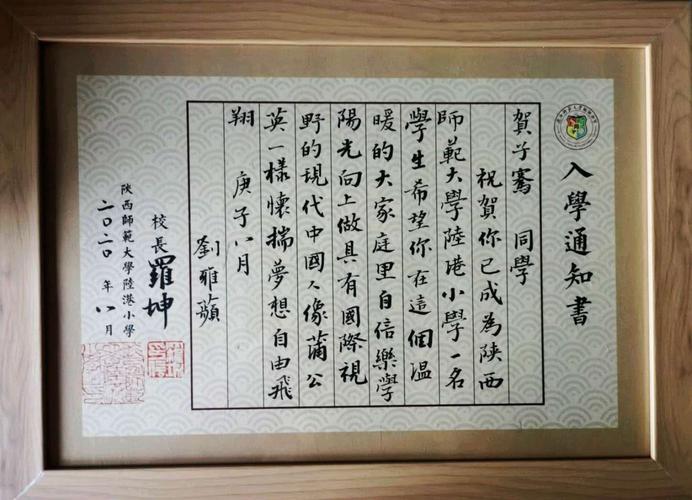 入學通知書
賀子騫 同學
祝賀你已成為陝西
師範大學陸港小學一名
學生希望你在這個溫
暖的大家庭里自信樂學
陽光向上做具有國際視
野的現代中國人像蒲公
英一樣懷揣夢想自由飛
翔 庚子八月
劉雅蘋
校長 羅坤
陝西師範大學陸港小學
二〇二〇年八月